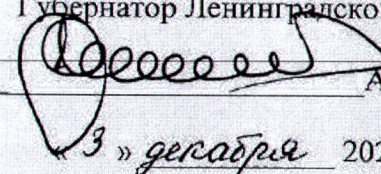 Губернатор Ленинградско
А
« 3 » декабря 202